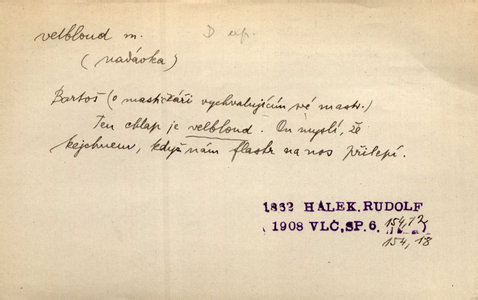 velbloud m. D expr.
(nadávka)
Bartoš (o mastičkáři vychvalujícím své mast.)
Ten chlap je velbloud. On myslí, že
kejchnem, když nám flastr na nos přilepí.
1832 HÁLEK, RUDOLF
(1908 VLČ, SP.6, 154,12
154,18